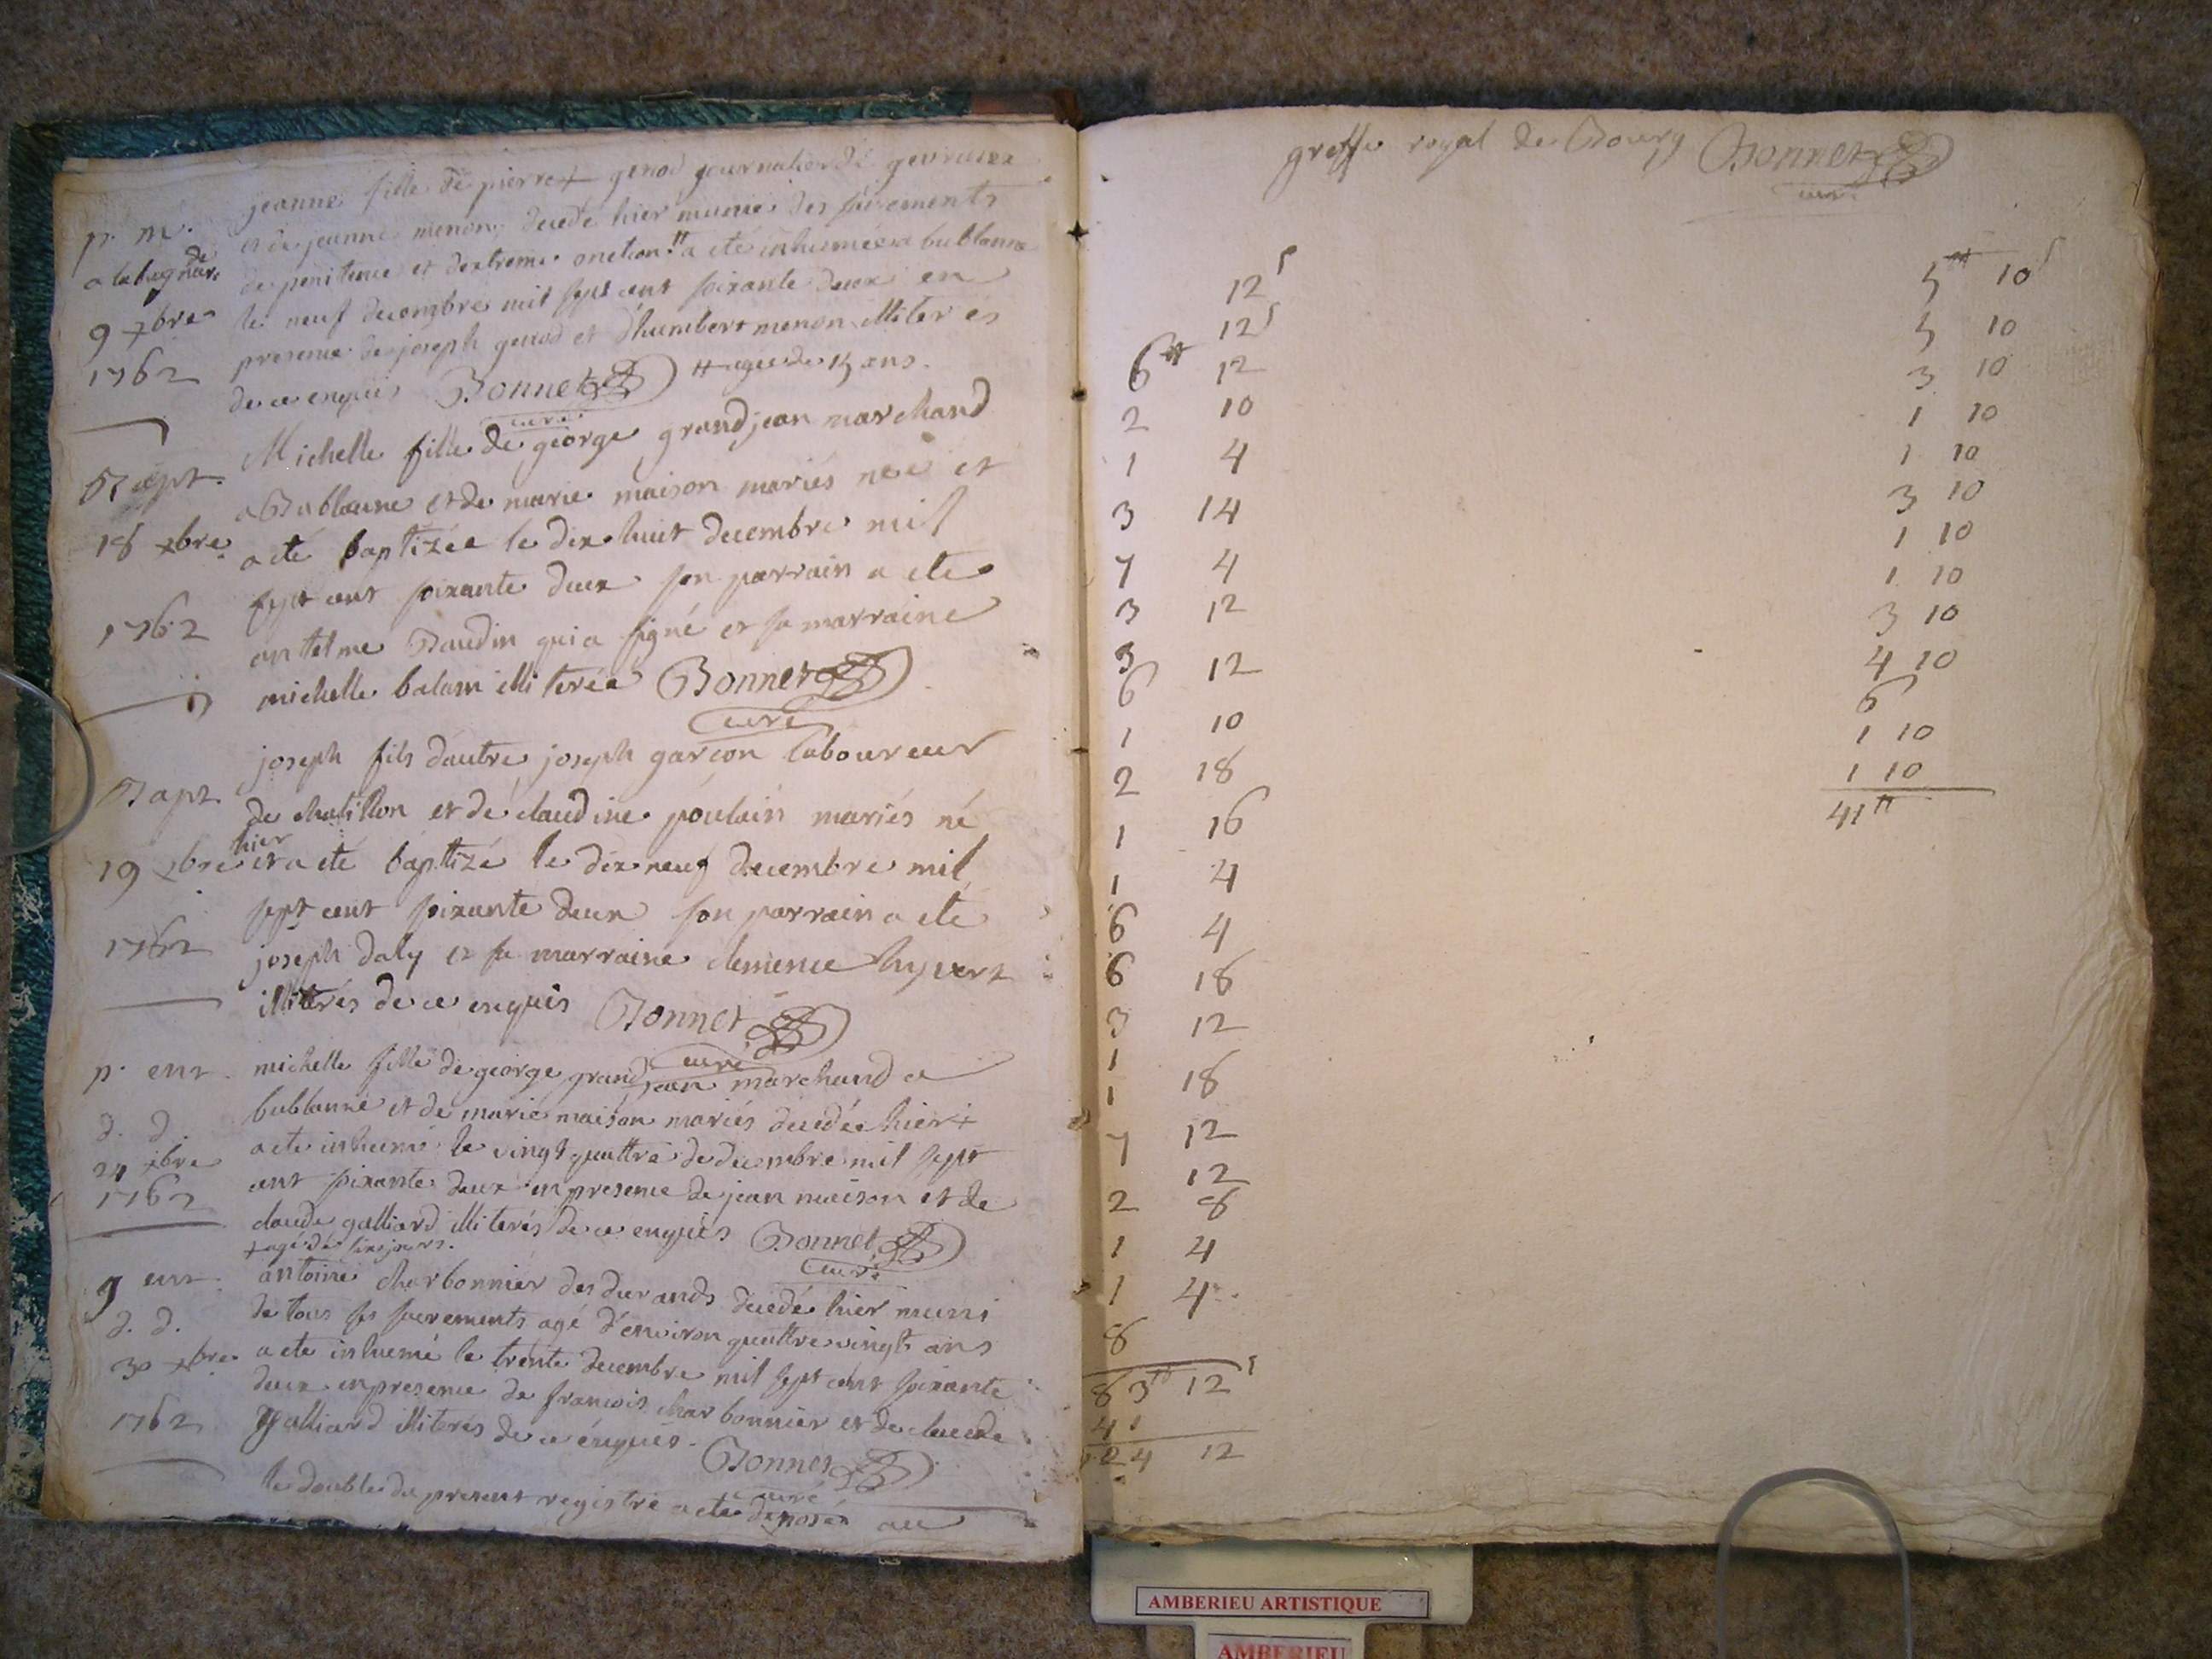 jeanne fille de pierre genod journalier de
p. m. et de jeanne menon, decede hier munie des sacrements
a la bagnar de de penitence et dextreme onction # a eté inhumée a bublanne
9 xbre le neuf decembre mil sept cent soixante deux en
1762 presence de joseph genod et d'humbert menon illiterés
de ce enquis Bonnet # agée de 15 ans.
curé
Michelle fille de george grandjean marchand
Bapt. a Bublanne et de marie maison mariés née et
18 xbre a eté baptizée le dix huit decembre mil
sept cent soixante deux son parrain a eté
1762 antelme Baudin qui a signé et sa marraine
michelle balam illiterée Bonnet
curé
joseph fils d'autre joseph garçon laboureur
Bapt. de chatillon et de claudine poulain mariés né
19 xbre hier et a eté baptizé le dix neuf decembre mil
sept cent soixante deux son parrain a eté
1762 joseph daly et sa marraine clemence
illiterés de ce enquis Bonnet
curé
p. ent. michelle fille de george grandjean marchand a
d. d. bublanne et de marie maison mariés decedée hier +
24 xbre a eté inhumé le vingt quattre de decembre mil sept
1762 cent soixante deux en presence de jean maison et de
claude galliard illiterés de ce enquis Bonnet
+ agé de six jours. curé
g ent. antoine charbonnier des durands decedé hier muni
d. d. de tous ses sacrements agé d'environ quattre vingt ans
30 xbre a eté inhumé le trente decembre mil sept cent soixante
deux en presence de francois charbonnier et de claude
1762 galliard illiterés de ce enquis.
Bonnet
curé
le double du present registre a eté deposé au
greffe royal de Bourg Bonnet
curé
12 s
12 s
6 tt 12
2 10
1 4
3 14
7 4
3 12
3 12
6
1 10
2 18
1 16
1 4
6 4
6 18
3 12
1
1 18
7 12
12
2 8
1 4
1 4
8
83 tt 12 s
41
124 12
5 tt 10 s
5 10
3 10
1 10
1 10
3 10
1 10
1 10
3 10
4 10
6
1 10
1 10
41 tt
AMBERIEU ARTISTIQUE
AMBERIEU